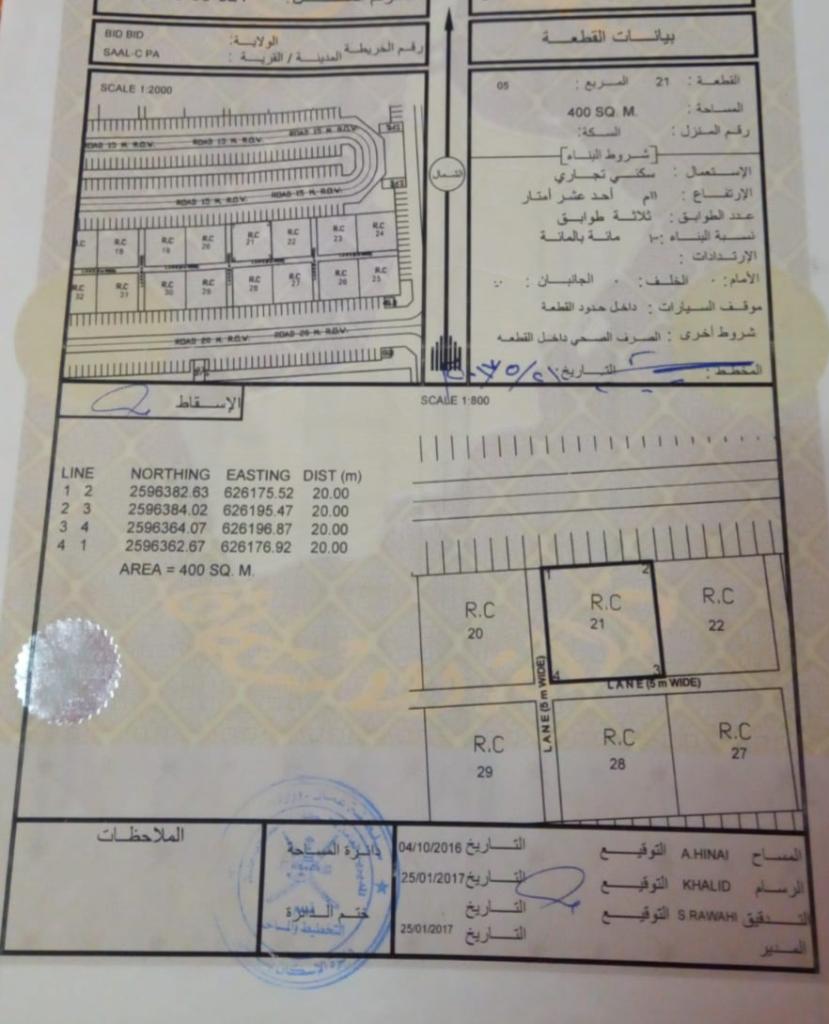 BID BID
الولاية:
SAAL-C PA
المدينة / القرية :
رقم الخريطة
بيانات القطعة
SCALE 1:2000
ROAD 15 M. R.O.V.
ROAD 15 M. R.O.V.
ROAD 15 M. R.O.V.
ROAD 15 M. R.O.V.
ROAD 15 M. R.O.V.
R.C 18
R.C 19
R.C 20
R.C 21
R.C 22
R.C 23
R.C 24
R.C 32
R.C 31
R.C 30
R.C 29
R.C 28
R.C 27
R.C 26
R.C 25
ROAD 20 M. R.O.V.
ROAD 20 M. R.O.V.
الشمال
القطعة : 21 المربع : 05
المساحة: 400 SQ. M.
رقم المنزل : السكة:
شروط البناء
الإستعمال : سكني تجاري
الإرتفاع : ١١م أحد عشر أمتار
عدد الطوابق : ثلاثة طوابق
نسبة البناء : ١٠٠ مائة بالمائة
الإرتدادات :
الأمام: ٠ الخلف: ٠ الجانبان :
موقف السيارات : داخل حدود القطعة
شروط أخرى : الصرف الصحي داخل القطعه
المخطط : التاريخ:
الإسقاط
SCALE 1:800
LINE NORTHING EASTING DIST (m)
1 2 2596382.63 626175.52 20.00
2 3 2596384.02 626195.47 20.00
3 4 2596364.07 626196.87 20.00
4 1 2596362.67 626176.92 20.00
AREA = 400 SQ. M.
1 2
R.C 20
R.C 21
R.C 22
4 3
LANE (5 m WIDE)
LANE (5 m WIDE)
R.C 29
R.C 28
R.C 27
الملاحظات
دائرة المساحة
ختم الدائرة
التخطيط والمساحة
المساح A.HINAI التوقيع التاريخ 04/10/2016
الرسام KHALID التوقيع التاريخ 25/01/2017
التدقيق S.RAWAHI التوقيع التاريخ
المدير التاريخ 25/01/2017